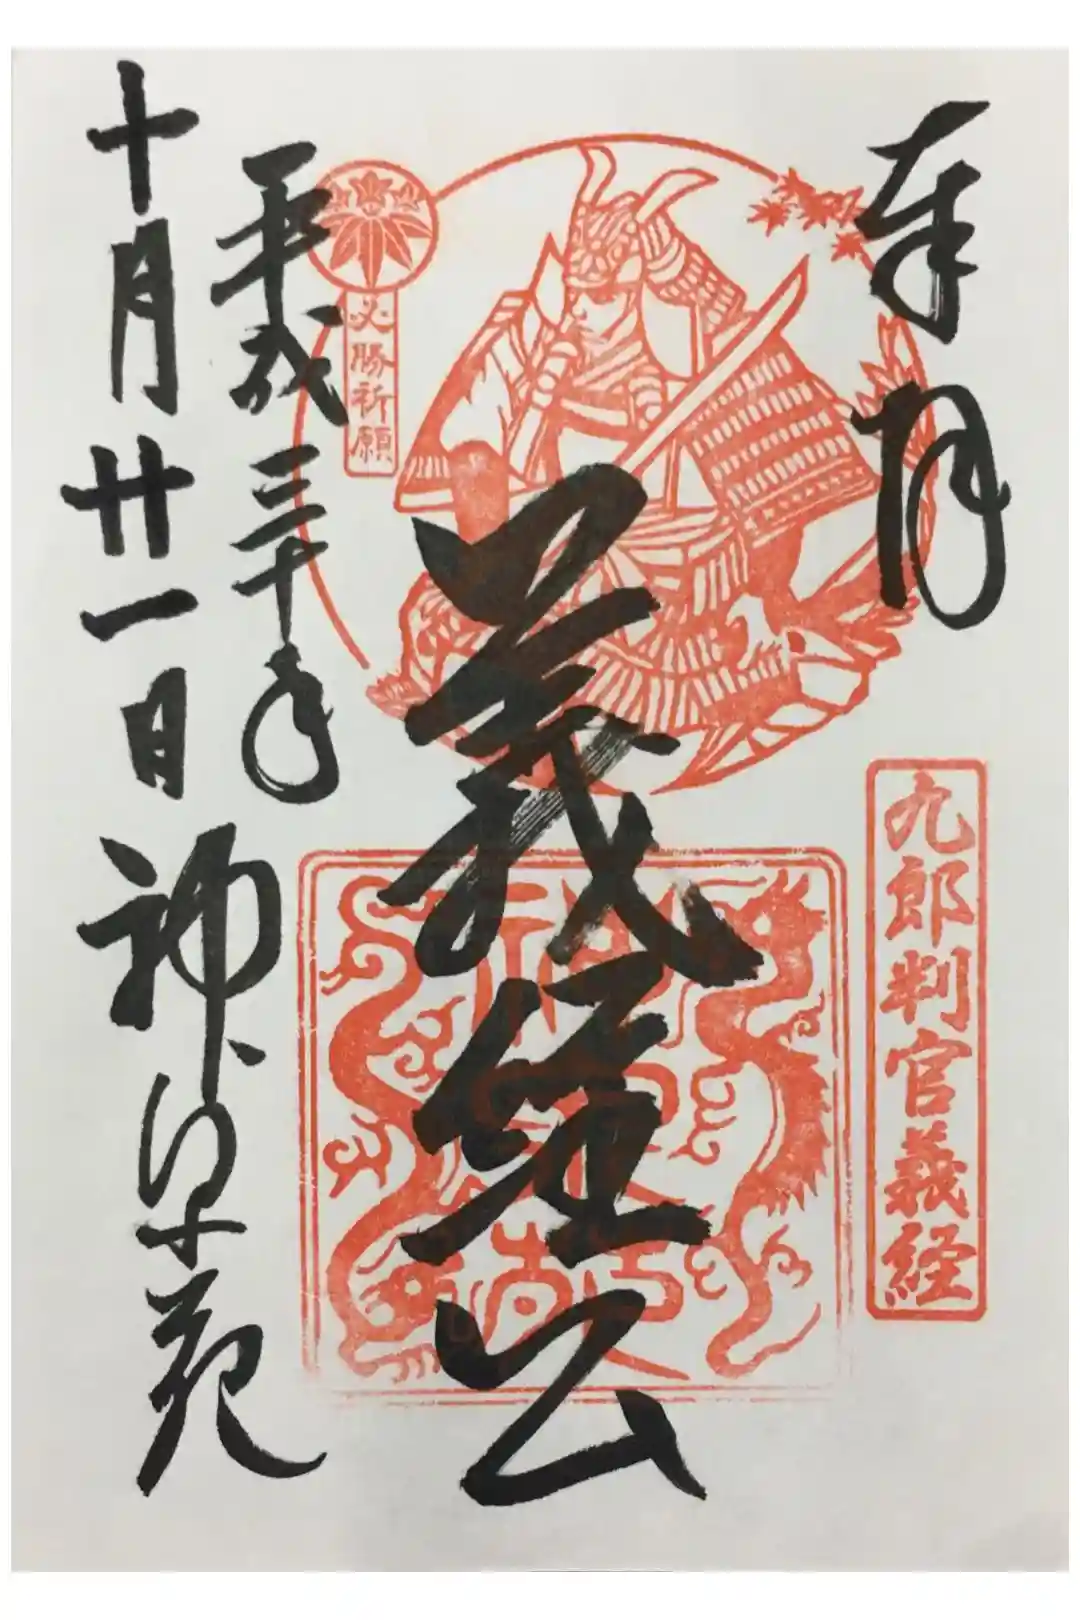 奉拝
九郎判官義経
義経公
必勝祈願
平成三十年
十月廿一日
神泉苑